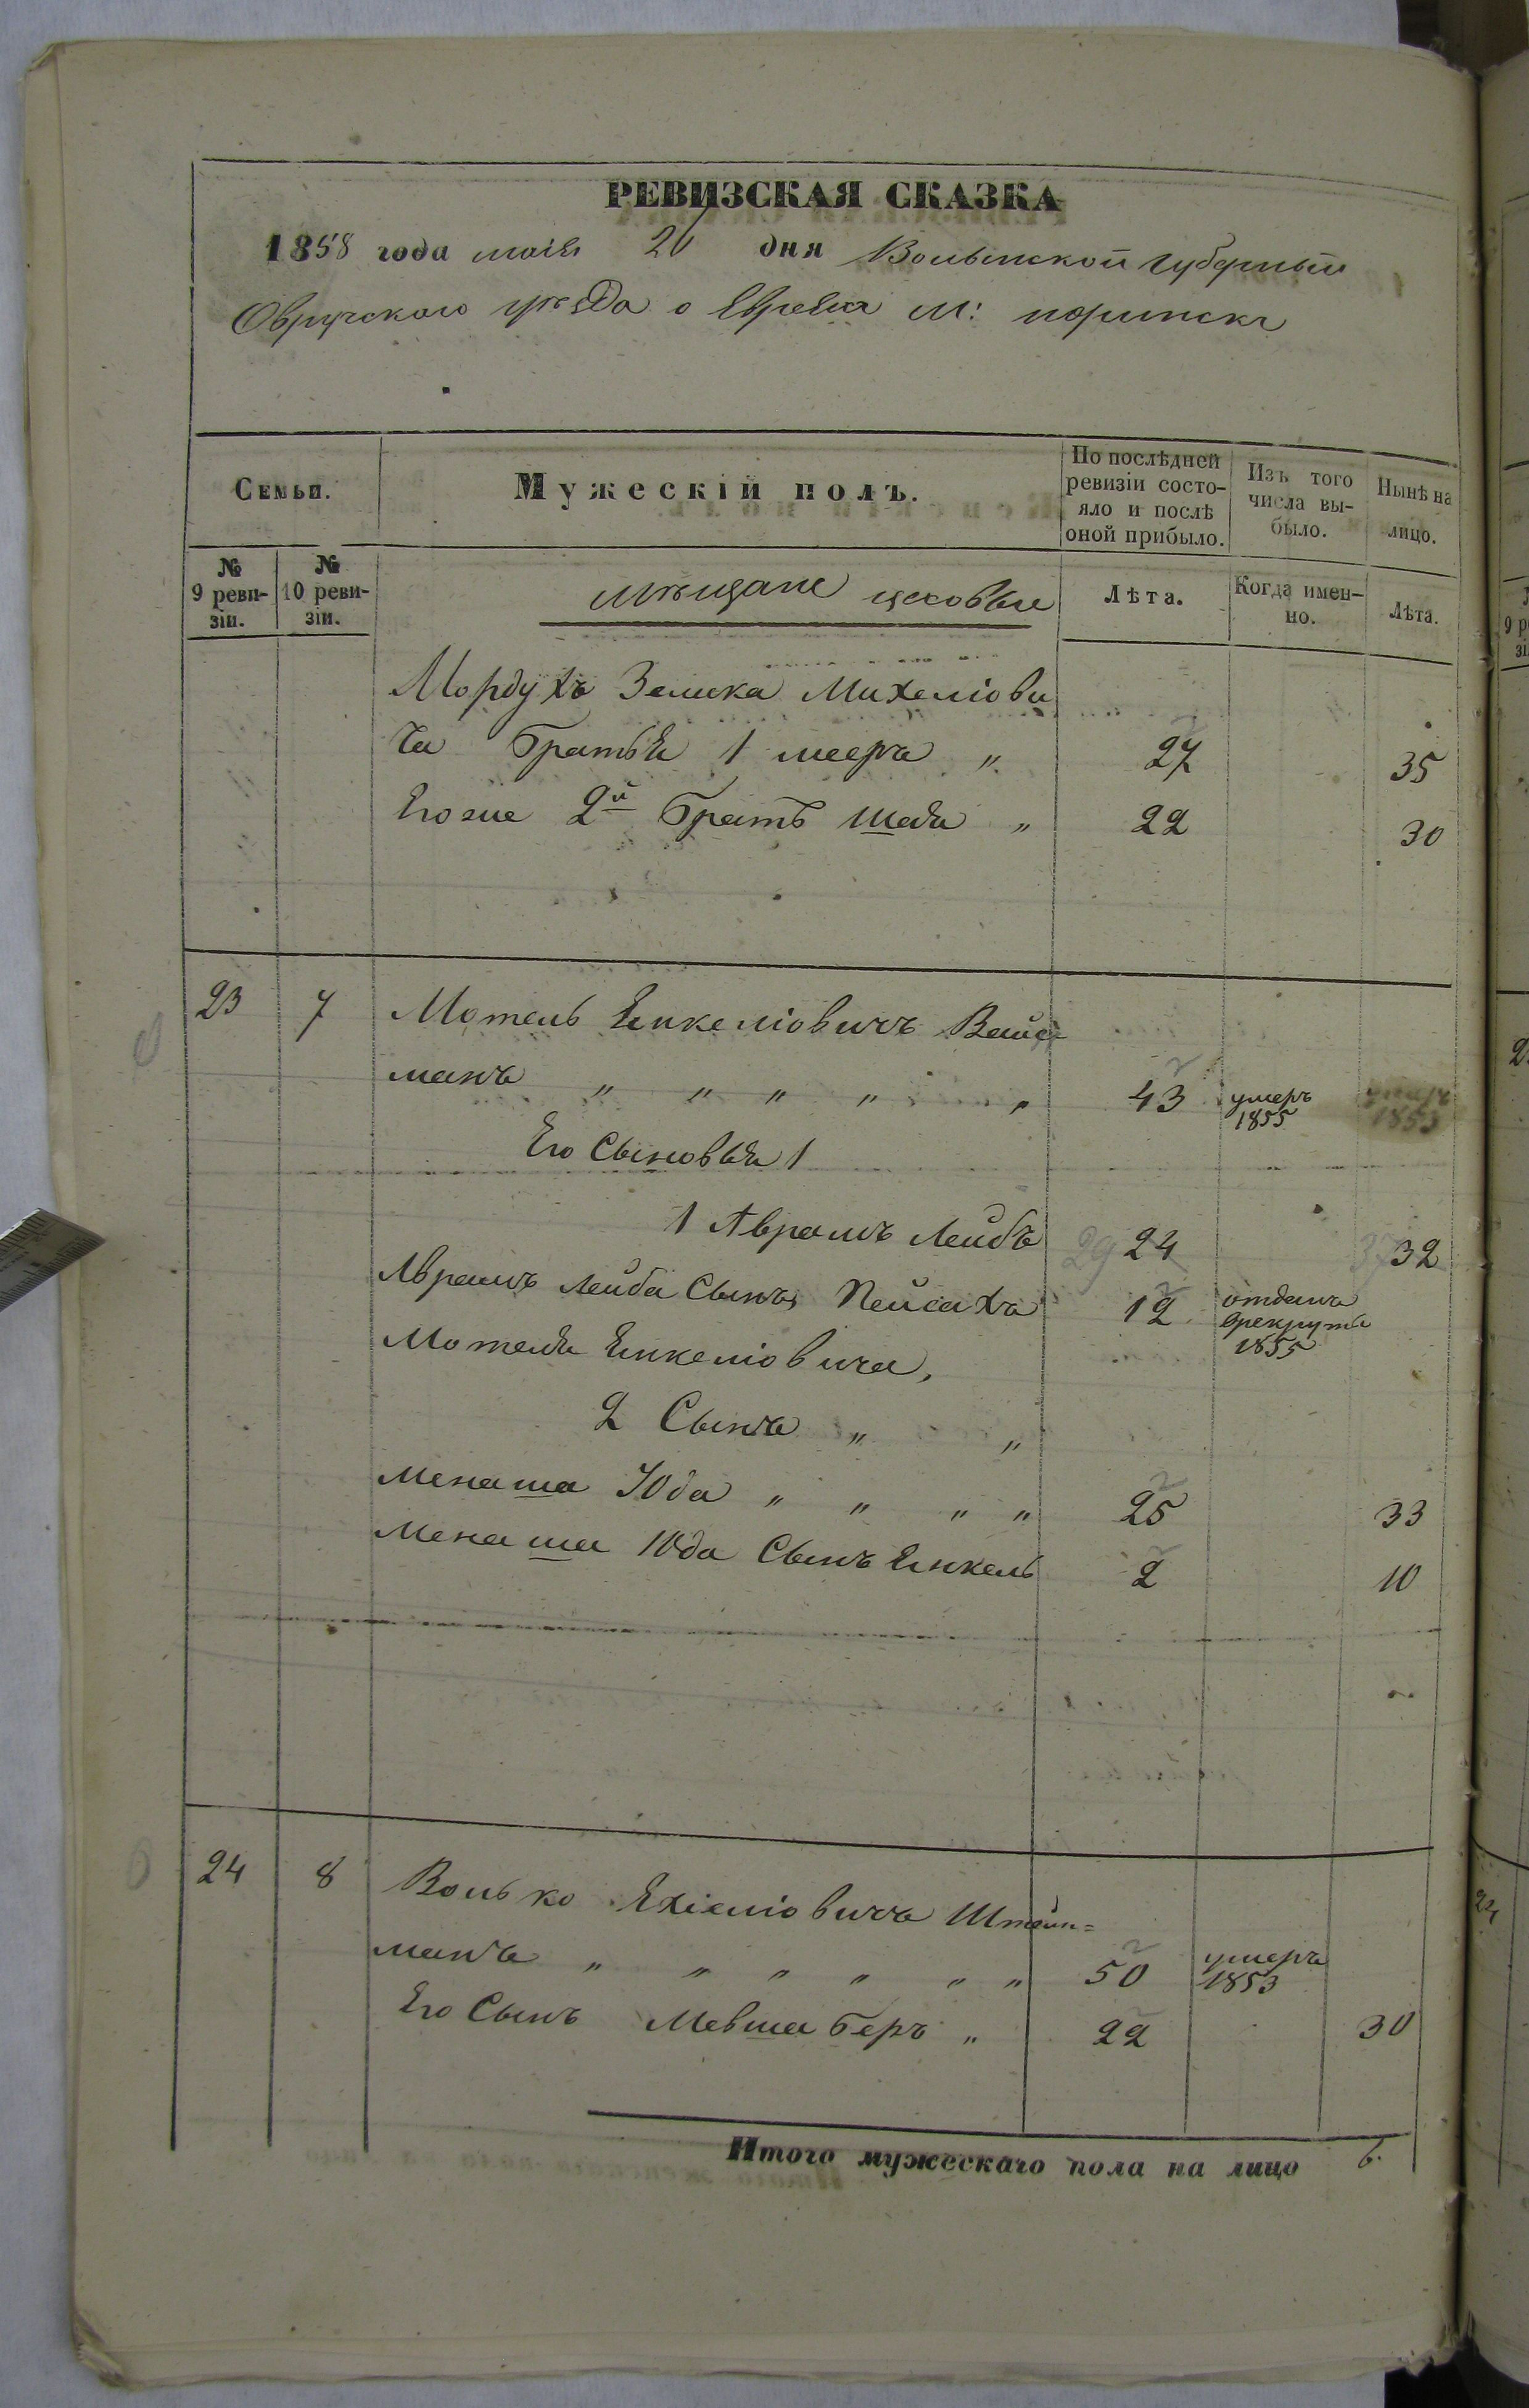 РЕВИЗСКАЯ СКАЗКА
1858 года маія 20 дня Волынской губерныи
Овручского уѣзда о Евреях м: норинска
Семьи. Мужескій полъ. По послѣдней ревизіи состо-яло и послѣ оной прибыло. Изъ того числа вы-было. Нынѣ на лицо.
№ 9 реви-зіи. № 10 реви-зіи. мѣщане цеховые Лѣта. Когда имен-но. Лѣта.
Мордухъ Зелика Михеліови
ча Братья 1 мееръ " 27 35
Его же 2й Братъ Шая " 22 30
23 7 Мотель Енкеліовичъ Вайс
манъ " " " " " 43 умеръ 1855
Его Сыновья 1
1 Аврамъ Лейбъ 29 24 32
Аврамъ Лейба Сынъ Пейсахъ 12 отданъ врекруты 1855
Мотеля Енкеліовича,
2 Сынъ " "
Менаша Юда " " " " 25 33
Менаша Юда Сынъ Енкель 2 10
24 8 Волько Ехіеліовичъ Штейн=
манъ " " " " " " 50 умеръ 1853
Его Сынъ Мевша Беръ " 22 30
Итого мужескаго пола на лицо 6.